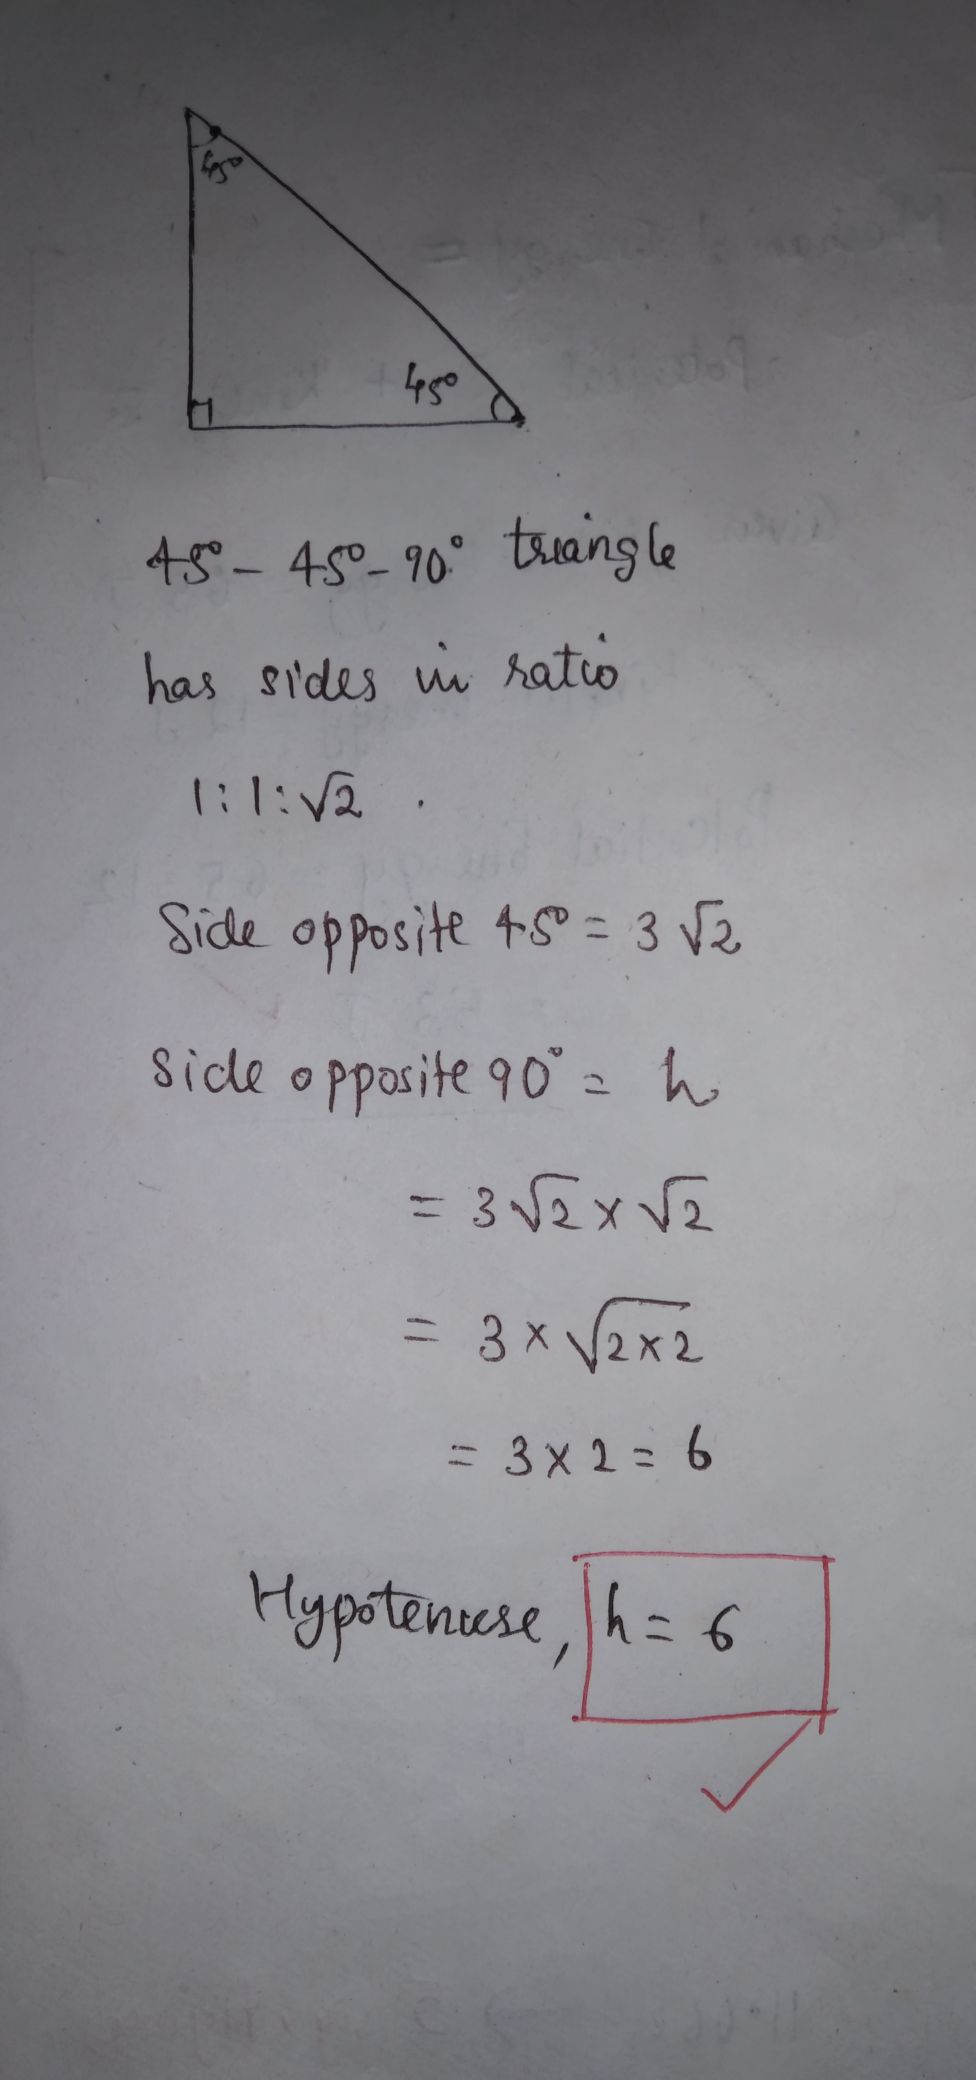 45°
45°
45° - 45° - 90° triangle
has sides in ratio
1:1:√2 .
Side opposite 45° = 3√2
Side opposite 90° = h
= 3√2 x √2
= 3 x √2x2
= 3 x 2 = 6
Hypotenuse, h = 6